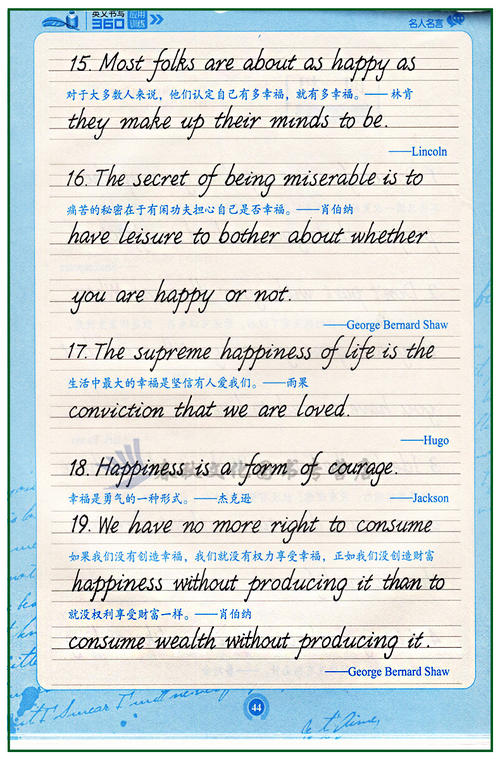 英文书写
360
应用
训练
名人名言
15. Most folks are about as happy as
对于大多数人来说，他们认定自己有多幸福，就有多幸福。——林肯
they make up their minds to be.
——Lincoln
16. The secret of being miserable is to
痛苦的秘密在于有闲功夫担心自己是否幸福。——肖伯纳
have leisure to bother about whether
you are happy or not.
——George Bernard Shaw
17. The supreme happiness of life is the
生活中最大的幸福是坚信有人爱我们。——雨果
conviction that we are loved.
——Hugo
18. Happiness is a form of courage.
幸福是勇气的一种形式。——杰克逊
——Jackson
19. We have no more right to consume
如果我们没有创造幸福，我们就没有权力享受幸福，正如我们没创造财富
happiness without producing it than to
就没权利享受财富一样。——肖伯纳
consume wealth without producing it.
——George Bernard Shaw
44